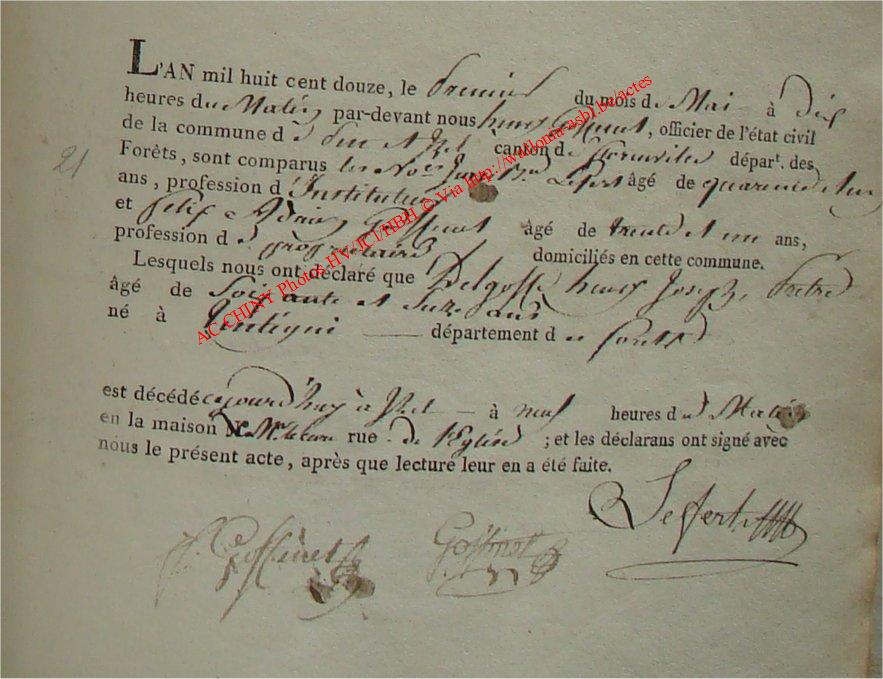 L'AN mil huit cent douze, le Premier du mois de Mai à dix
heures du Matin par-devant nous henry Goffinet, officier de l'état civil
de la commune d'Izel canton de florenville départ. des
21
Forêts, sont comparus les Lefert âgé de quarante et un
ans, profession d'Instituteur
et felix Goffinet âgé de trente et un ans,
profession de proprietaire domiciliés en cette commune.
Lesquels nous ont déclaré que Delgoffe henry Joseph, Pretre
âgé de Soixante et Seize ans
né à Tintigni département des forets
est décédé cejourd'huy à Izel à neuf heures du Matin
en la maison rue de l'Eglise ; et les déclarans ont signé avec
nous le présent acte, après que lecture leur en a été faite.
Lefert
Goffinet Goffinet
AC-CHINY Photos HV-JCI/HBH © Via http://wallonia-asbl.be/actes